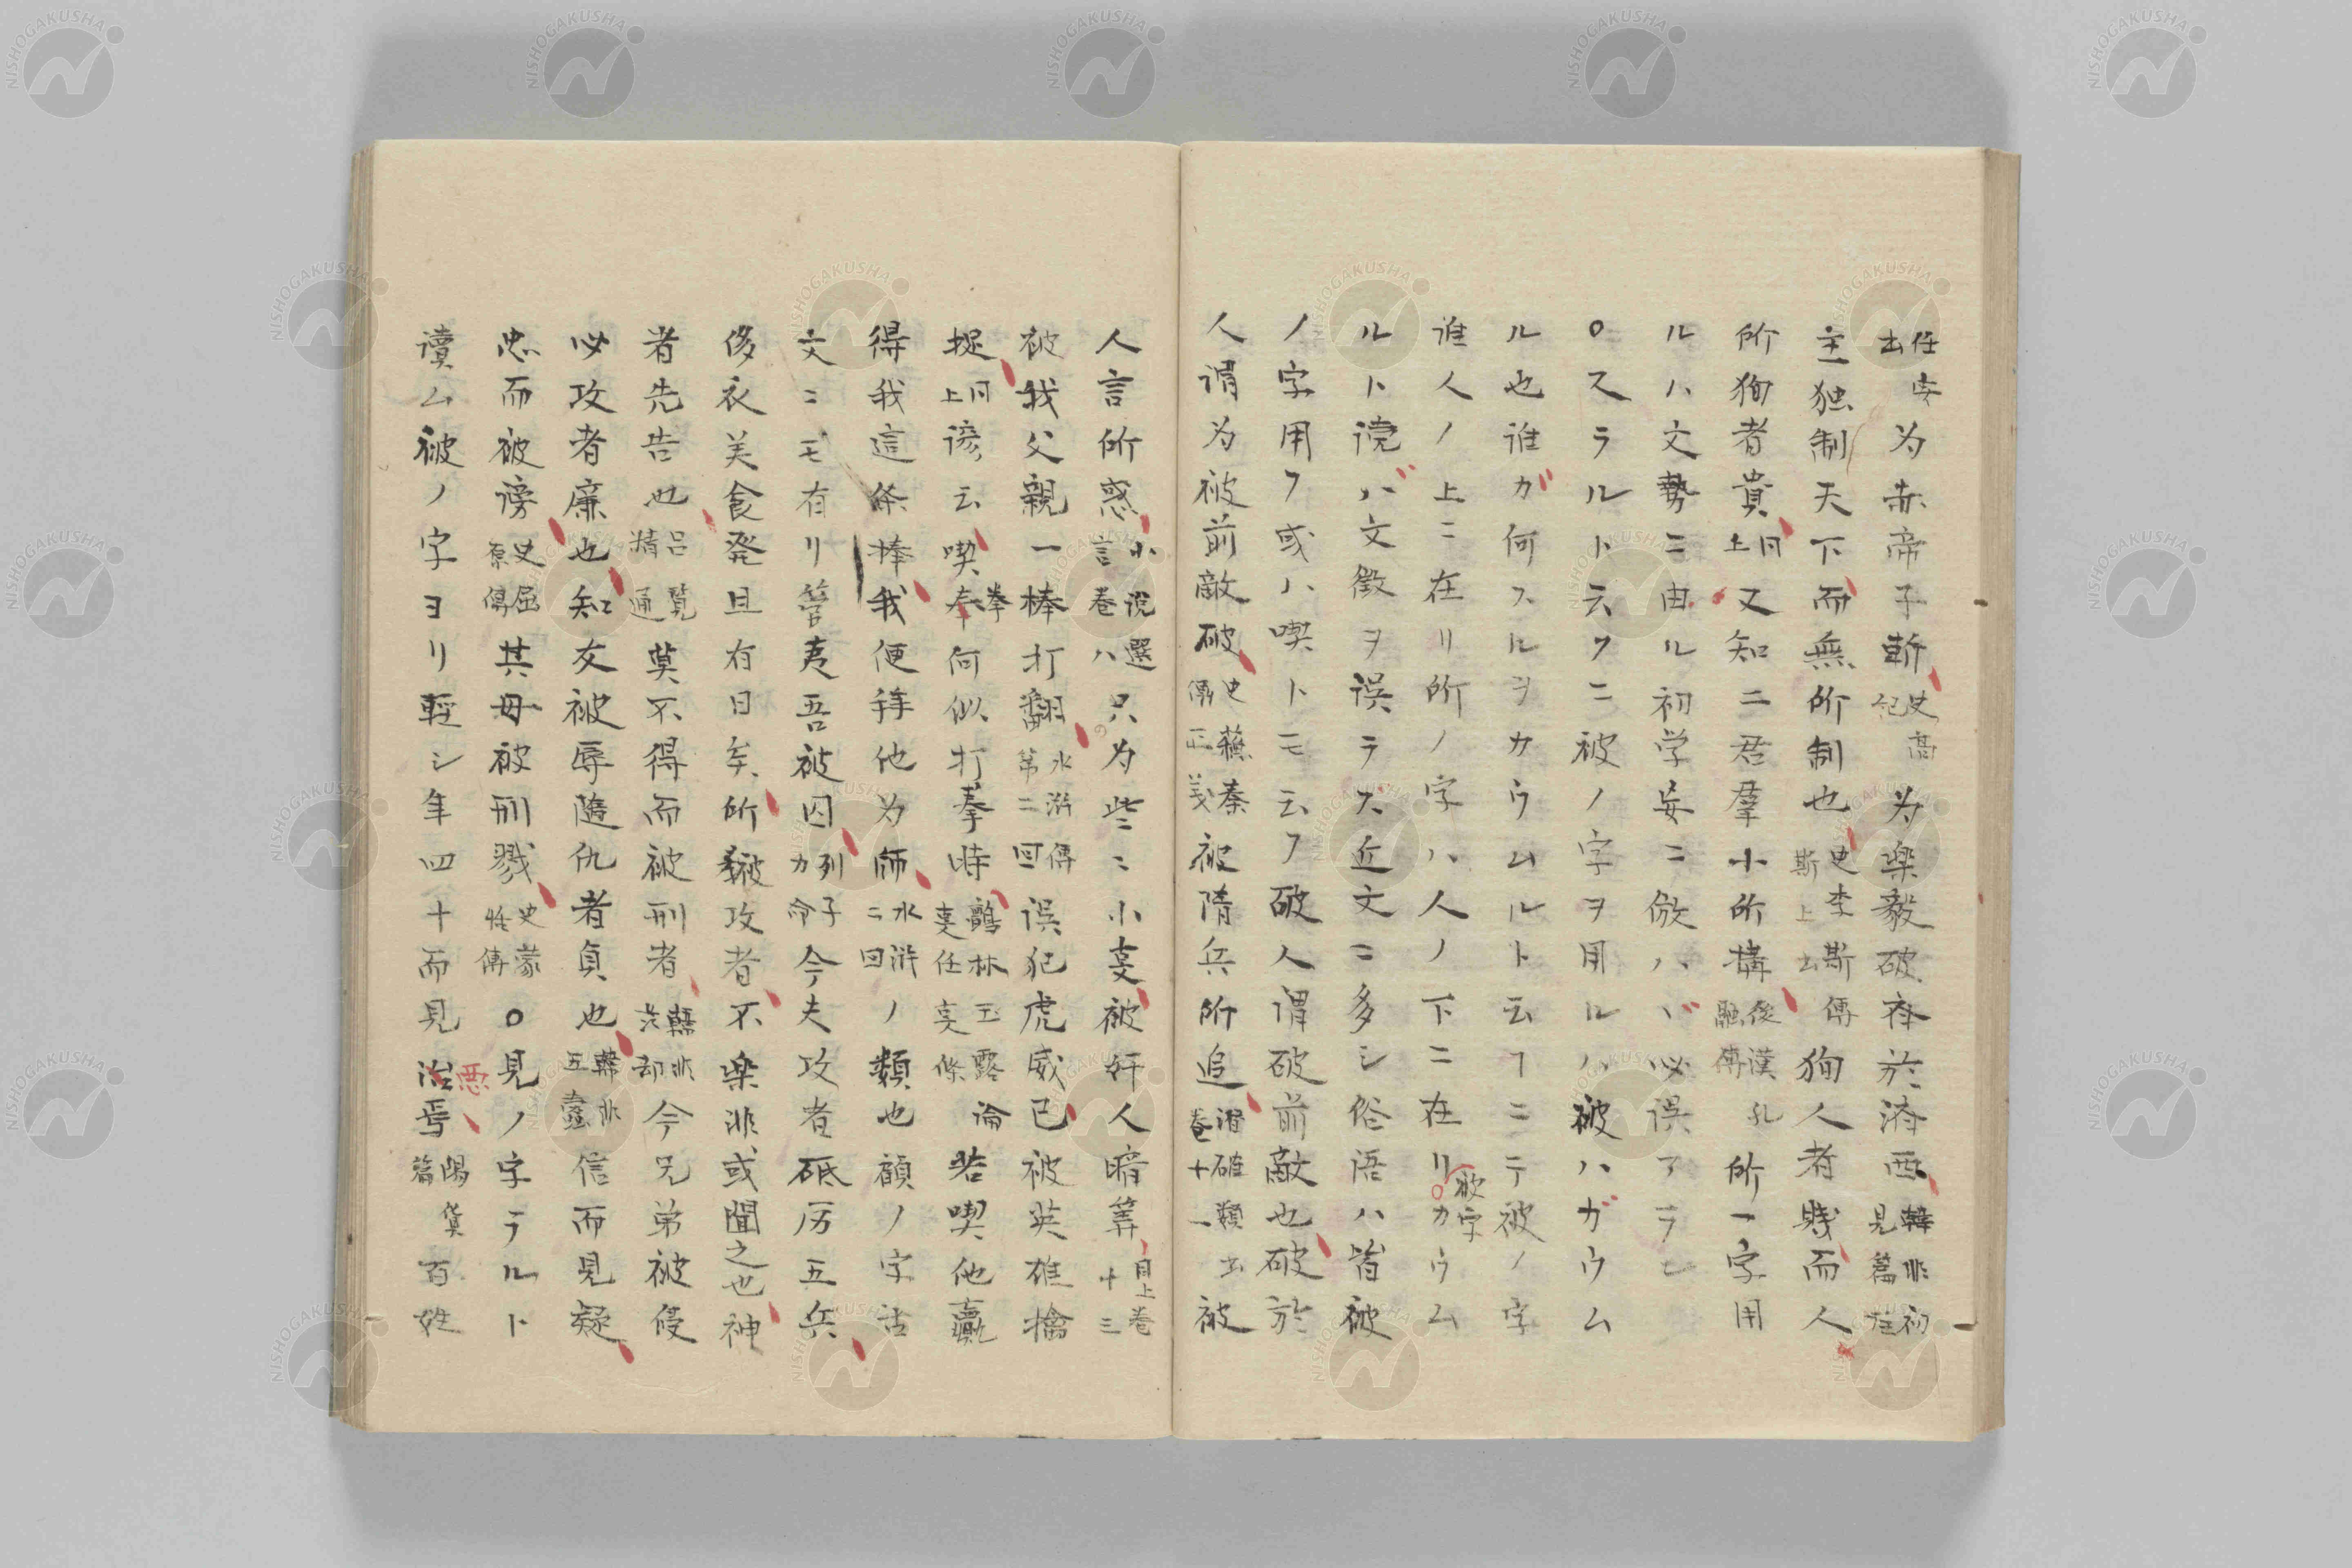 任安出為赤帝子斬史高紀為楽毅破斉於済西韓非初見篇註
主独制天下而無所制也史李斯傳斯上去狥人者賎而人
所狥者貴同上又知二君羣小所構後漢孔融傳所一字用
ルハ文勢ニ由ル初学妄ニ倣ハバ必誤アラン
○スラルト云フニ被ノ字ヲ用ルハ被ハガウム
ル也誰ガ何スルヲカウムルト云フニテ被ノ字
誰人ノ上ニ在リ所ノ字ハ人ノ下ニ在リ被字カウム
ルト読バ文徴ヲ誤ラス近文ニ多シ俗语ハ皆被
ノ字用フ或ハ喫トモ云フ破人謂破前敵也破於
人謂为被前敵破史蘓秦傳正義被隋兵所追潜確類書巻十一被
人言所惑小説選言巻八只为些ニ小事被奸人暗筭目上巻十三
被我父親一棒打翻水滸傳第二囬误犯虎威已被英雄擒
捉同上諺云喫拳何似打拳時鶴林玉露論事任事條若喫他贏
得我這条棒我便拝他为師水滸二囬ノ類也顧ノ字古
文ニモ有リ管夷吾被囚列子力命今夫攻者砥厉五兵
侈衣美食発且有日矣所被攻者不楽非或聞之也神
者先告也吕覧精通莫不得而被刑者韓非今兄弟被侵
必攻者廉也知友被辱隨仇者貞也韓非五蠹信而見疑
忠而被谤史屈原傳其母被刑戮史蒙恬傳○見ノ字ラルト
讀ム被ノ字ヨリ輕シ年四十而見惡焉陽貨篇百姓